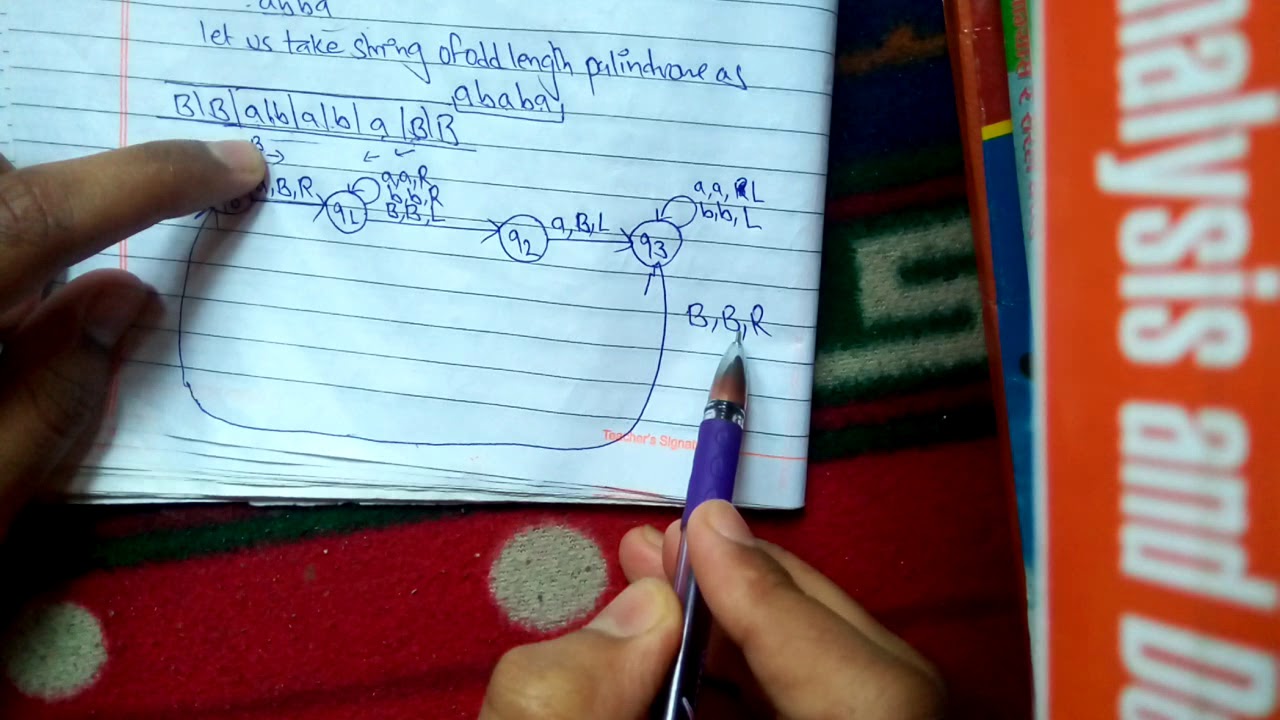 abba
let us take string of odd length palindrome as
ababa
B|B|a|b|a|b|a|B|B
B
a,B,R
q1
a,a,R
b,b,R
B,B,L
q2
a,B,L
q3
a,a,L
b,b,L
B,B,R
Teacher's Signat
nalysis and D